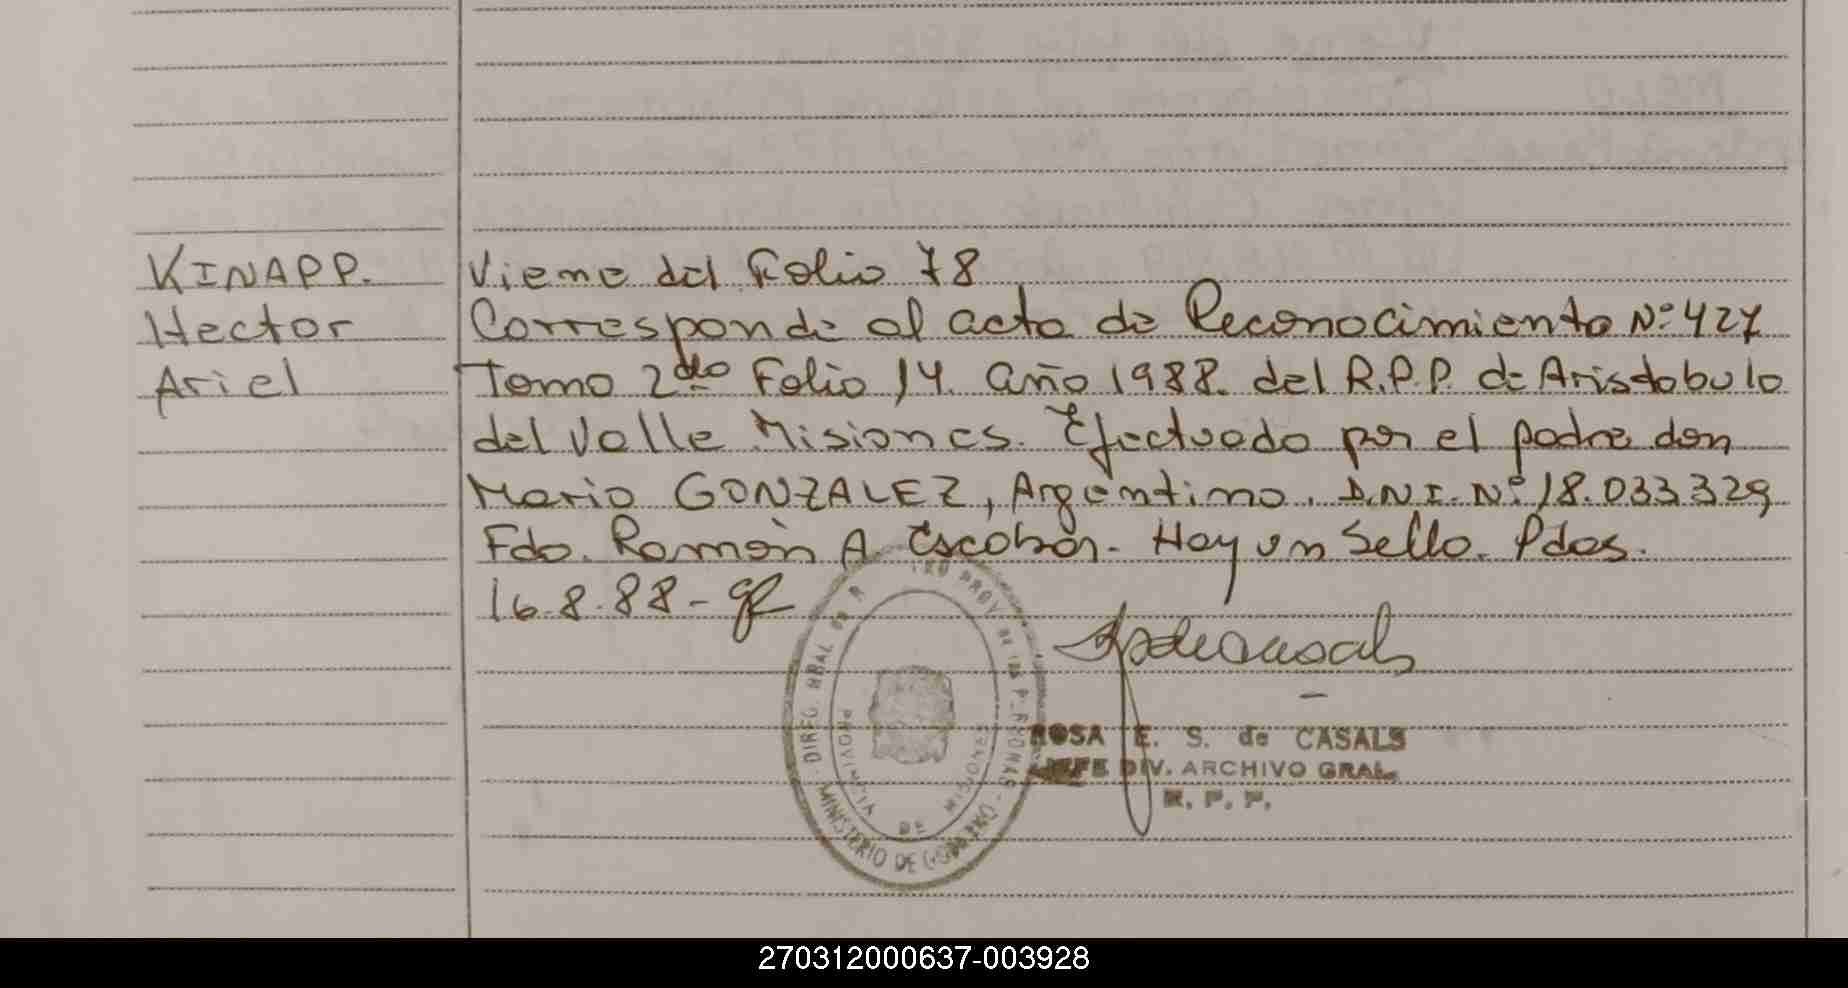 KINAPP.
Hector
Ariel
Viene del Folio 78
Corresponde al acta de Reconocimiento Nº 427
Tomo 2do Folio 14. año 1988. del R.P.P. de Aristobulo
del Valle Misiones. Efectuado por el padre don
Mario GONZALEZ, Argentino. D.N.I. Nº 18.033329
Fdo. Ramón A Escobar. Hay un Sello. Pdas.
16.8.88-
DIREC. GRAL DE R PROV DE LAS PERSONAS
MINISTERIO DE GOBIERNO
PROVINCIA DE MISIONES
ROSA E. S. de CASALS
JEFE DIV. ARCHIVO GRAL.
R. P. P.
270312000637-003928